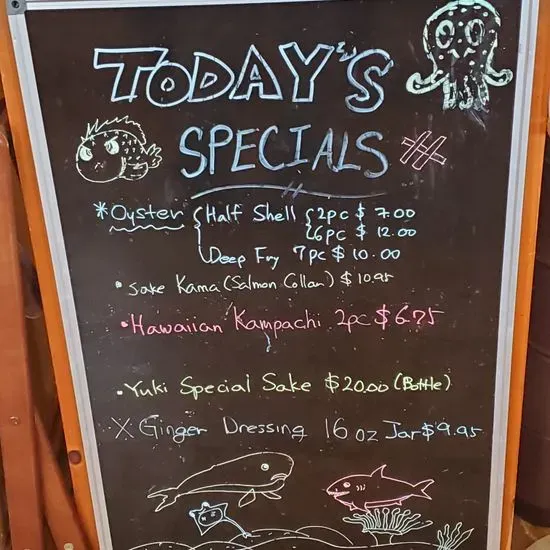 TODAY'S
SPECIALS
*Oyster { Half Shell { 2pc $ 7.00
6pc $ 12.00
Deep Fry 7pc $ 10.00
• Sake Kama (Salmon Collar) $ 10.95
• Hawaiian Kampachi 2pc $6.75
• Yuki Special Sake $20.00 (Bottle)
X Ginger Dressing 16 oz Jar $9.95